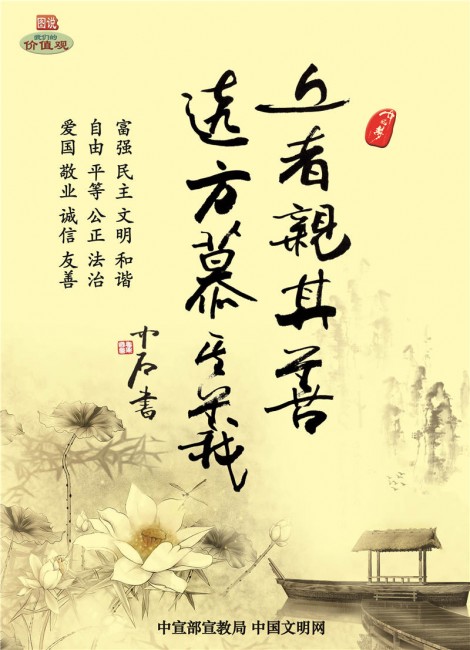 图说
我们的
价值观
中国梦
近者親其善
遠方慕其義
中石書
富强 民主 文明 和谐
自由 平等 公正 法治
爱国 敬业 诚信 友善
中宣部宣教局 中国文明网